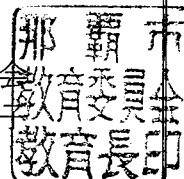 那覇市
教育委員会
教育長印